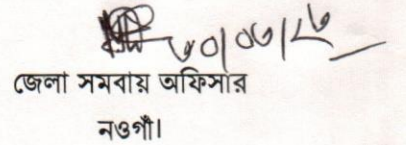 ৩০/০৩/২৬
জেলা সমবায় অফিসার
নওগাঁ।